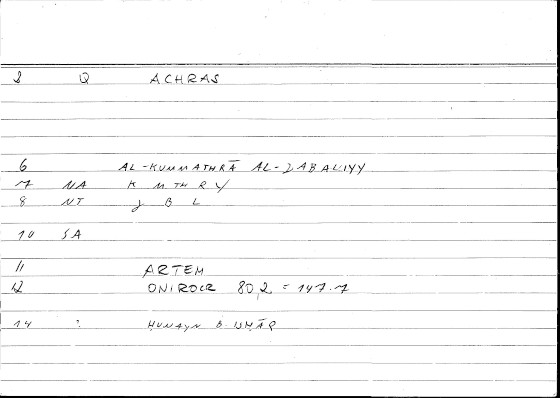 2 Q ACHRAS
6 AL-KUMMATHRĀ AL-ǦABALIYY
7 NA K M TH R Y
8 NT J B L
10 SA
11 ARTEM
12 ONIROCR 80,2 = 147.7
14 : ḤUNAYN B. ISḤĀQ